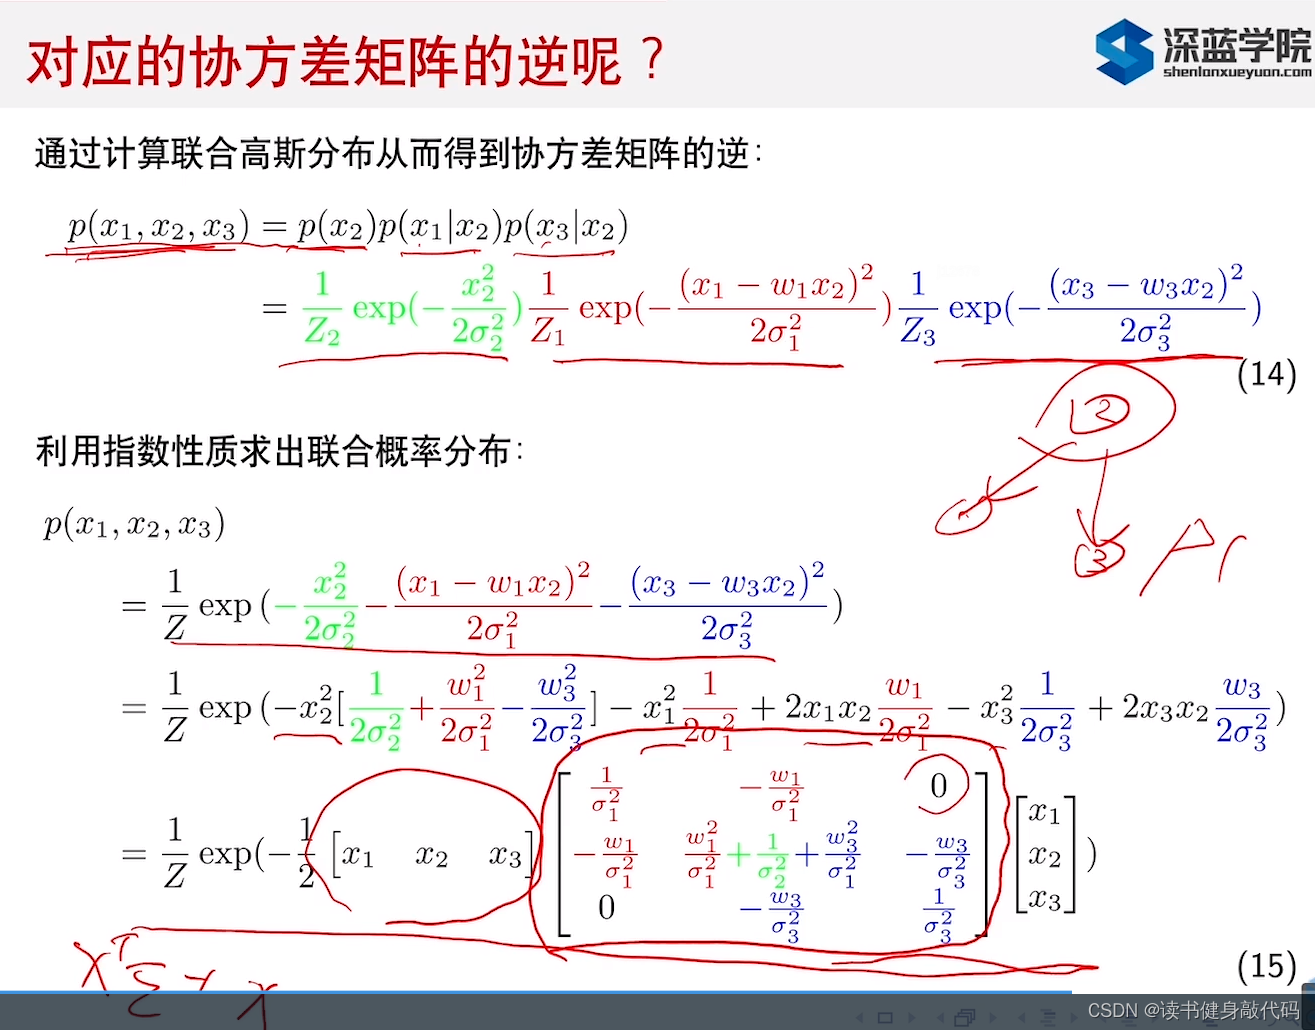 对应的协方差矩阵的逆呢？
深蓝学院
shenlanxueyuan.com
通过计算联合高斯分布从而得到协方差矩阵的逆：
p(x₁, x₂, x₃) = p(x₂)p(x₁|x₂)p(x₃|x₂)
= \frac{1}{Z_2} exp(−\frac{x_2^2}{2σ_2^2}) \frac{1}{Z_1} exp(−\frac{(x_1 − w_1x_2)^2}{2σ_1^2}) \frac{1}{Z_3} exp(−\frac{(x_3 − w_3x_2)^2}{2σ_3^2})
(14)
2
3
利用指数性质求出联合概率分布：
p(x₁, x₂, x₃)
= \frac{1}{Z} exp(−\frac{x_2^2}{2σ_2^2} − \frac{(x_1 − w_1x_2)^2}{2σ_1^2} − \frac{(x_3 − w_3x_2)^2}{2σ_3^2})
= \frac{1}{Z} exp(−x_2^2[\frac{1}{2σ_2^2} + \frac{w_1^2}{2σ_1^2} − \frac{w_3^2}{2σ_3^2}] − x_1^2\frac{1}{2σ_1^2} + 2x_1x_2\frac{w_1}{2σ_1^2} − x_3^2\frac{1}{2σ_3^2} + 2x_3x_2\frac{w_3}{2σ_3^2})
= \frac{1}{Z} exp(−\frac{1}{2} [x_1 x_2 x_3] [\frac{1}{σ_1^2} −\frac{w_1}{σ_1^2} 0; −\frac{w_1}{σ_1^2} \frac{w_1^2}{σ_1^2} + \frac{1}{σ_2^2} + \frac{w_3^2}{σ_1^2} −\frac{w_3}{σ_3^2}; 0 −\frac{w_3}{σ_3^2} \frac{1}{σ_3^2}] [x_1; x_2; x_3])
(15)
CSDN @读书健身敲代码